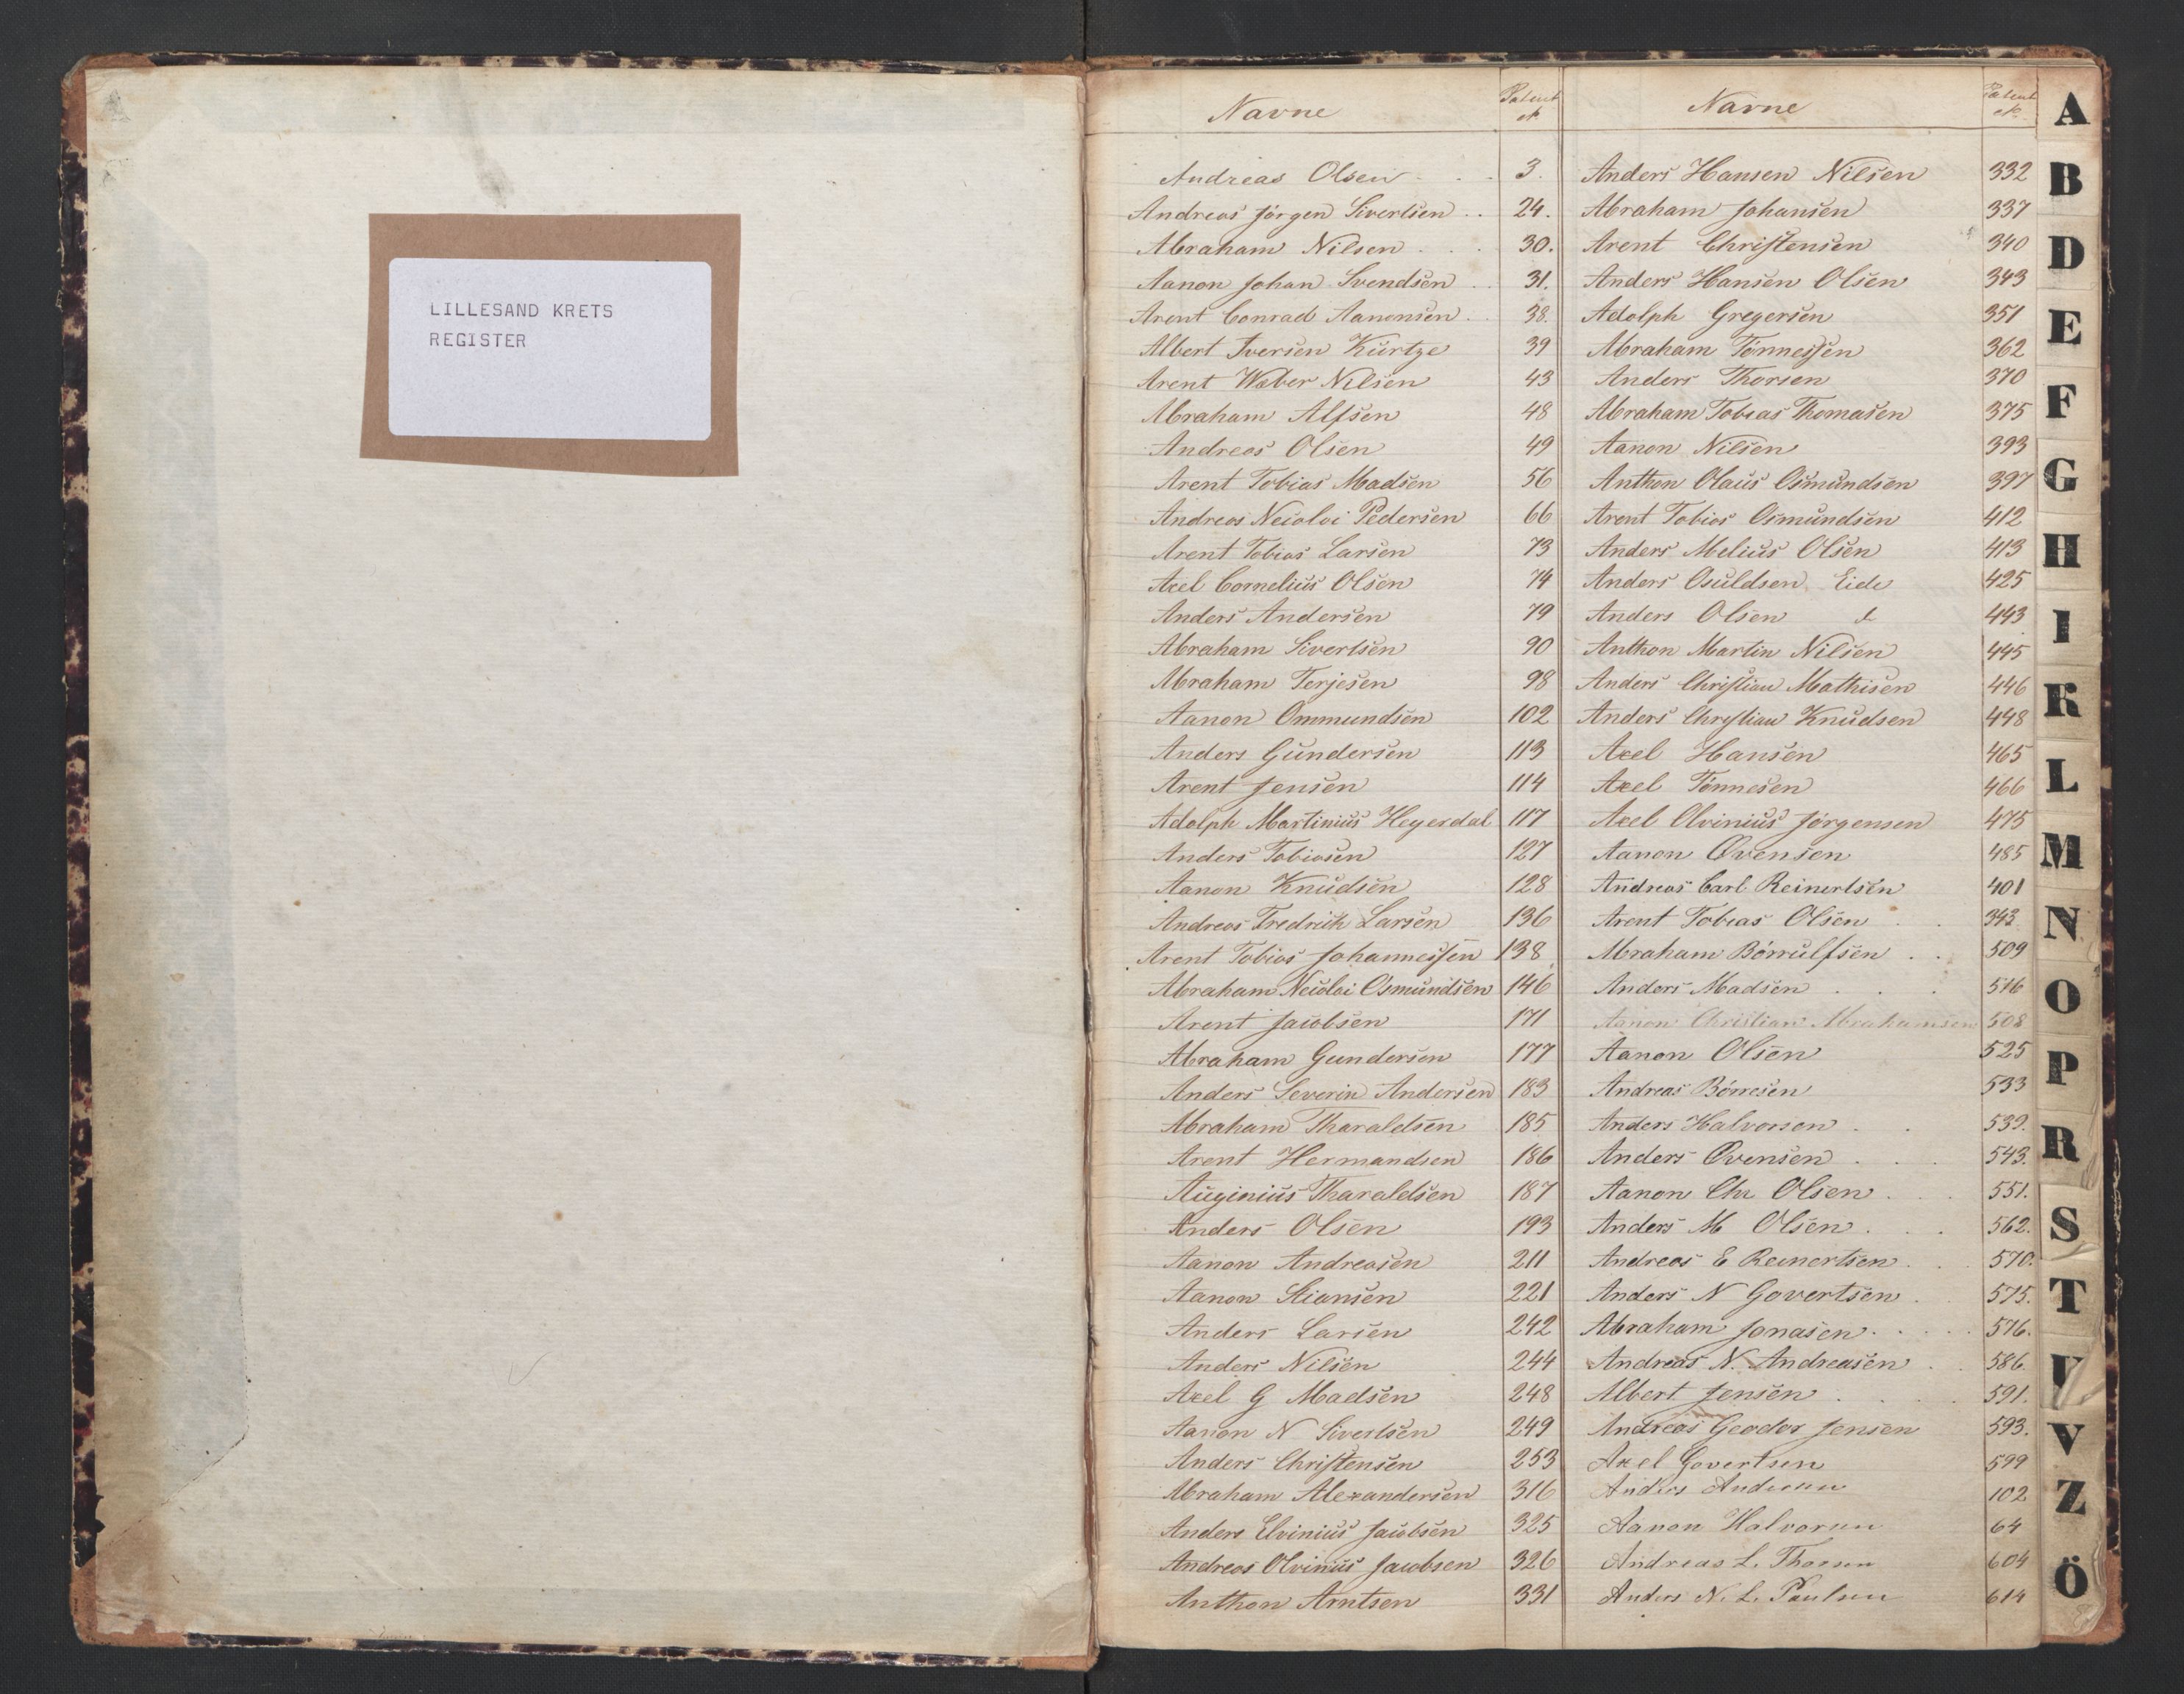 LILLESAND KRETS
REGISTER
Navne Patent №
Andreas Olsen 3.
Andreas Jörgen Sivertsen 24.
Abraham Nilsen 30.
Aanon Johan Svendsen 31.
Arent Conrad Aanonsen 38.
Albert Iversen Kürtze 39
Arent Weber Nilsen 43
Abraham Alfsen 48
Andreas Olsen 49
Arent Tobias Madsen 56
Andreas Nicolai Pedersen 66
Arent Tobias Larsen 73
Axel Cornelius Olsen 74
Anders Andersen 79
Abraham Sivertsen 90
Abraham Terjesen 98
Aanon Ommundsen 102
Anders Gundersen 113
Arent Jensen 114
Adolph Martinius Heyerdal 117
Anders Tobiasen 127
Aanon Knudsen 128
Andreas Fredrich Larsen 136
Arent Tobias Johannessen 138
Abraham Nicolai Osmundsen 146
Arent Jacobsen 171
Abraham Gundersen 177
Anders Severin Andersen 183
Abraham Tharaldsen 185
Arent Hermandsen 186
Auginius Tharaldsen 187
Anders Olsen 193
Aanon Andreasen 211
Aanon Stiansen 221
Anders Larsen 242
Anders Nilsen 244
Axel G Madsen 248
Aanon N Sivertsen 249
Anders Christensen 253
Abraham Alexandersen 316
Anders Elvinius Jacobsen 325
Andreas Olvinius Jacobsen 326
Anthon Arntsen 331
Navne Patent №
Anders Hansen Nilsen 332
Abraham Johansen 337
Arent Christensen 340
Anders Hansen Olsen 343
Adolph Gregersen 351
Abraham Tönnessen 362
Anders Thorsen 370
Abraham Tobias Thomasen 375
Aanon Nilsen 393
Anthon Olaus Osmundsen 397
Arent Tobias Osmundsen 412
Anders Melius Olsen 413
Anders Osuldsen Eide 425
Anders Olsen 443
Anthon Martin Nilsen 445
Anders Christian Mathisen 446
Anders Christian Knudsen 448
Axel Hansen 465
Axel Tönnesen 466
Axel Olvinius Jörgensen 475
Aanon Ovensen 485
Andreas Carl Reinertsen 401
Arent Tobias Olsen 343
Abraham Börrulfsen 509
Anders Madsen 516
Aanon Christian Abrahamsen 508
Aanon Olsen 525
Andreas Börresen 533
Anders Halvorsen 539.
Anders Ovensen 543.
Aanon Chr Olsen 551.
Anders M Olsen 562.
Andreas E Reinertsen 570.
Anders N Govertsen 575.
Abraham Jonasen 576.
Andreas N. Andreasen 586.
Albert Jensen 591.
Andreas Geodor Jensen 593.
Axel Govertsen 599
Anders Andersen 102
Aanon Halvorsen 64
Andreas L. Thorsen 604
Anders N. L. Paulsen 614
A
B
D
E
F
G
H
I
K
L
M
N
O
P
R
S
T
U
V
Z
Ö